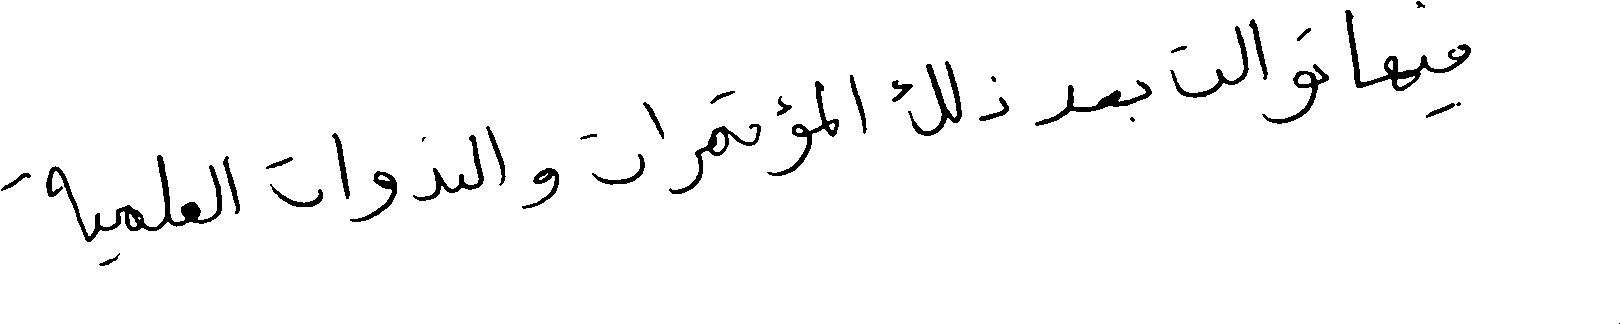 فيها توالت بعد ذلك المؤتمرات والندوات العلمية